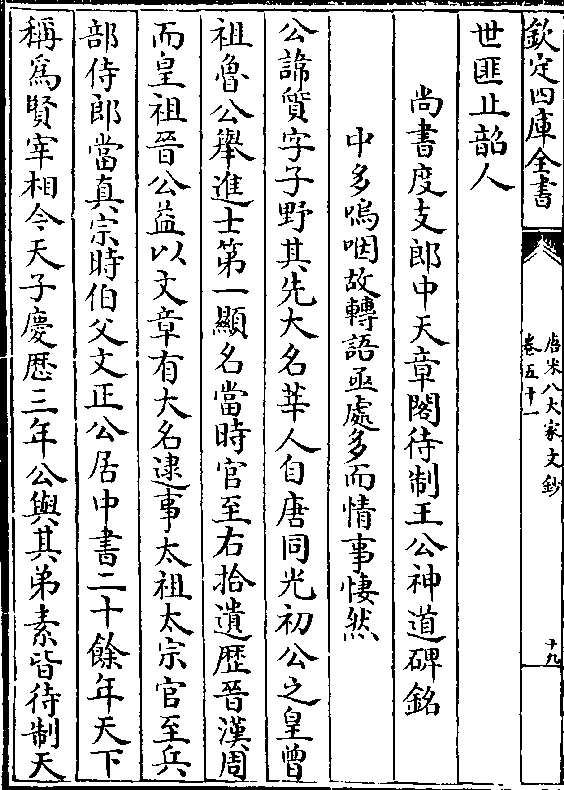 欽定四庫全書
唐宋八大家文鈔
卷五十一
十九
世匪止韶人
尚書度支郎中天章閣待制王公神道碑銘
中多嗚咽故轉語亟處多而情事悽然
公諱質字子野其先大名莘人自唐同光初公之皇曾
祖魯公舉進士第一顯名當時官至右拾遺歴晉漢周
而皇祖晉公益以文章有大名逮事太祖太宗官至兵
部侍郎當真宗時伯父文正公居中書二十餘年天下
稱為賢宰相今天子慶厯三年公與其弟素皆待制天